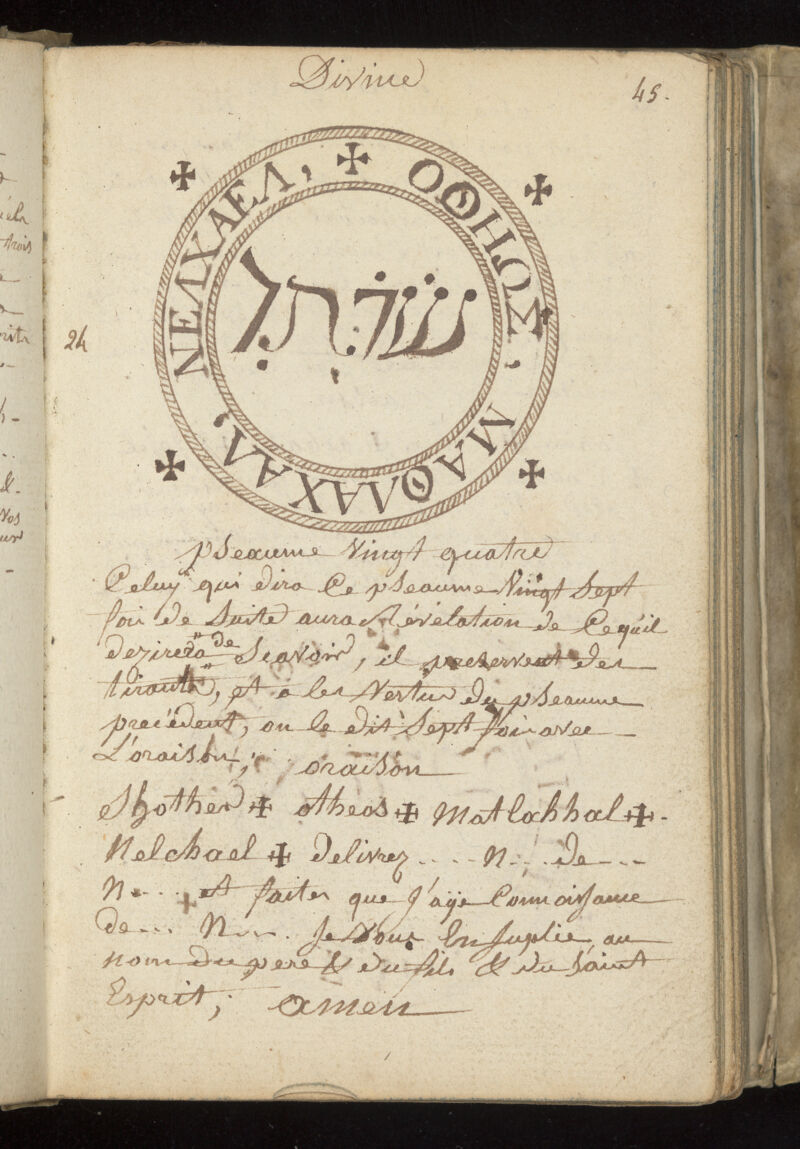 Divine
45.
✠ ΟΘΗΩΣ, ΜΑΘΛΑΧΑΛ, ΝΕΛΧΑΕΛ,
24
pseaume vingt quatre
Celuy qui dira Ce pseaume Vingt Sept
fois de Suite aura Révélation de Ce qu'il
dezirera de Scavoir, il preservent des
tirants, et a les Vertus du pseaume
precédent, on le dit Sept fois avec
L'oraison; oraison
✠ otheos ✠ Matlahhal ✠.
Nelchael ✠ delivrez .... N... de ---
N.... et faites que J'aÿe Connoissance
de... N.... Je Vous En Suplie, au
nom du pere & du fils & du Saint
Esprit; amen